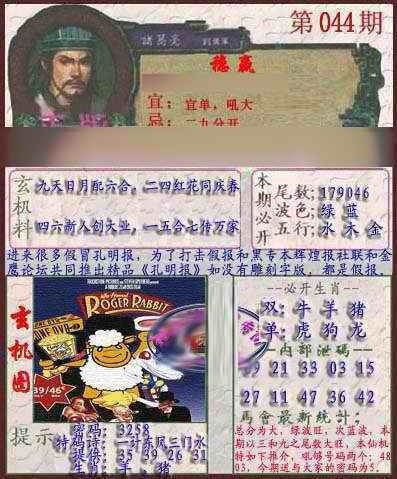 第044期
诸葛亮
稳赢
宜：宜单，吼大
忌：二九分开
玄机料
九天日月配六合，二四红花同庆春
四六新人创大业，一五合七传万家
本期必开
尾数：179046
波色：绿 蓝
五行：水 木 金
进来很多假冒孔明报，为了打击假报和黑专本辉煌报社联和金
鹰论坛共同推出精品《孔明报》如没有雕刻字版，都是假报.
玄机图
ROGER RABBIT
39/46
必开生肖
双：牛 羊 猪
单：虎 狗 龙
内部泄码
21 33 03 15
27 11 47 36 42
馬會最新统计：
总分为大，绿波旺，次蓝波，本
期以三和九之尾数大旺，本仙机
特如下推介，吼够号码两个：48
03，今期送与大家的密码为5.
提示
密码：3258
特码诗：一计东风三门永
提供：35 39 26 31
生肖：羊.猪